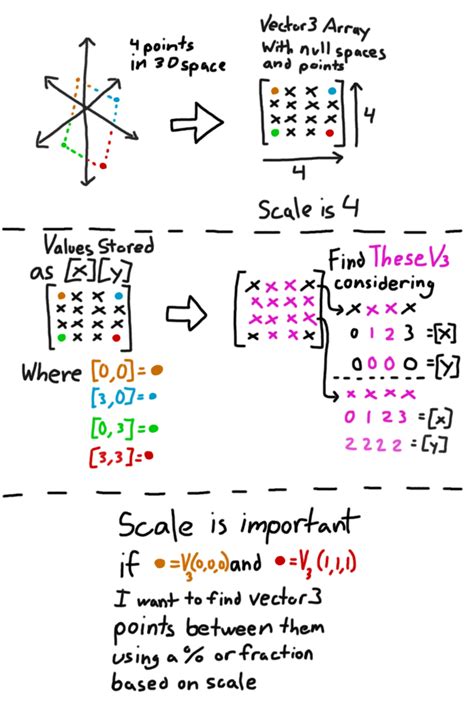 4 points
in 3D space
Vector3 Array
With null spaces
and points
x x
x x x x
x x x x
x x
4
4
Scale is 4
Values Stored
as [x][y]
x x
x x x x
x x x x
x x
Where [0,0]=
[3,0]=
[0,3]=
[3,3]=
x x x x
x x x x
x x x x
x x x x
Find These V3
considering
x x x x
0 1 2 3 =[x]
0 0 0 0 =[y]
x x x x
0 1 2 3 =[x]
2 2 2 2 =[y]
Scale is important
if =V3(0,0,0) and =V3(1,1,1)
I want to find vector3
points between them
using a % or fraction
based on scale